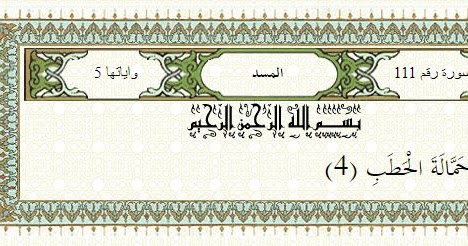 سورة رقم 111 المسد وآياتها 5
بسم الله الرحمن الرحيم
حَمَّالَةَ الْحَطَبِ (4)